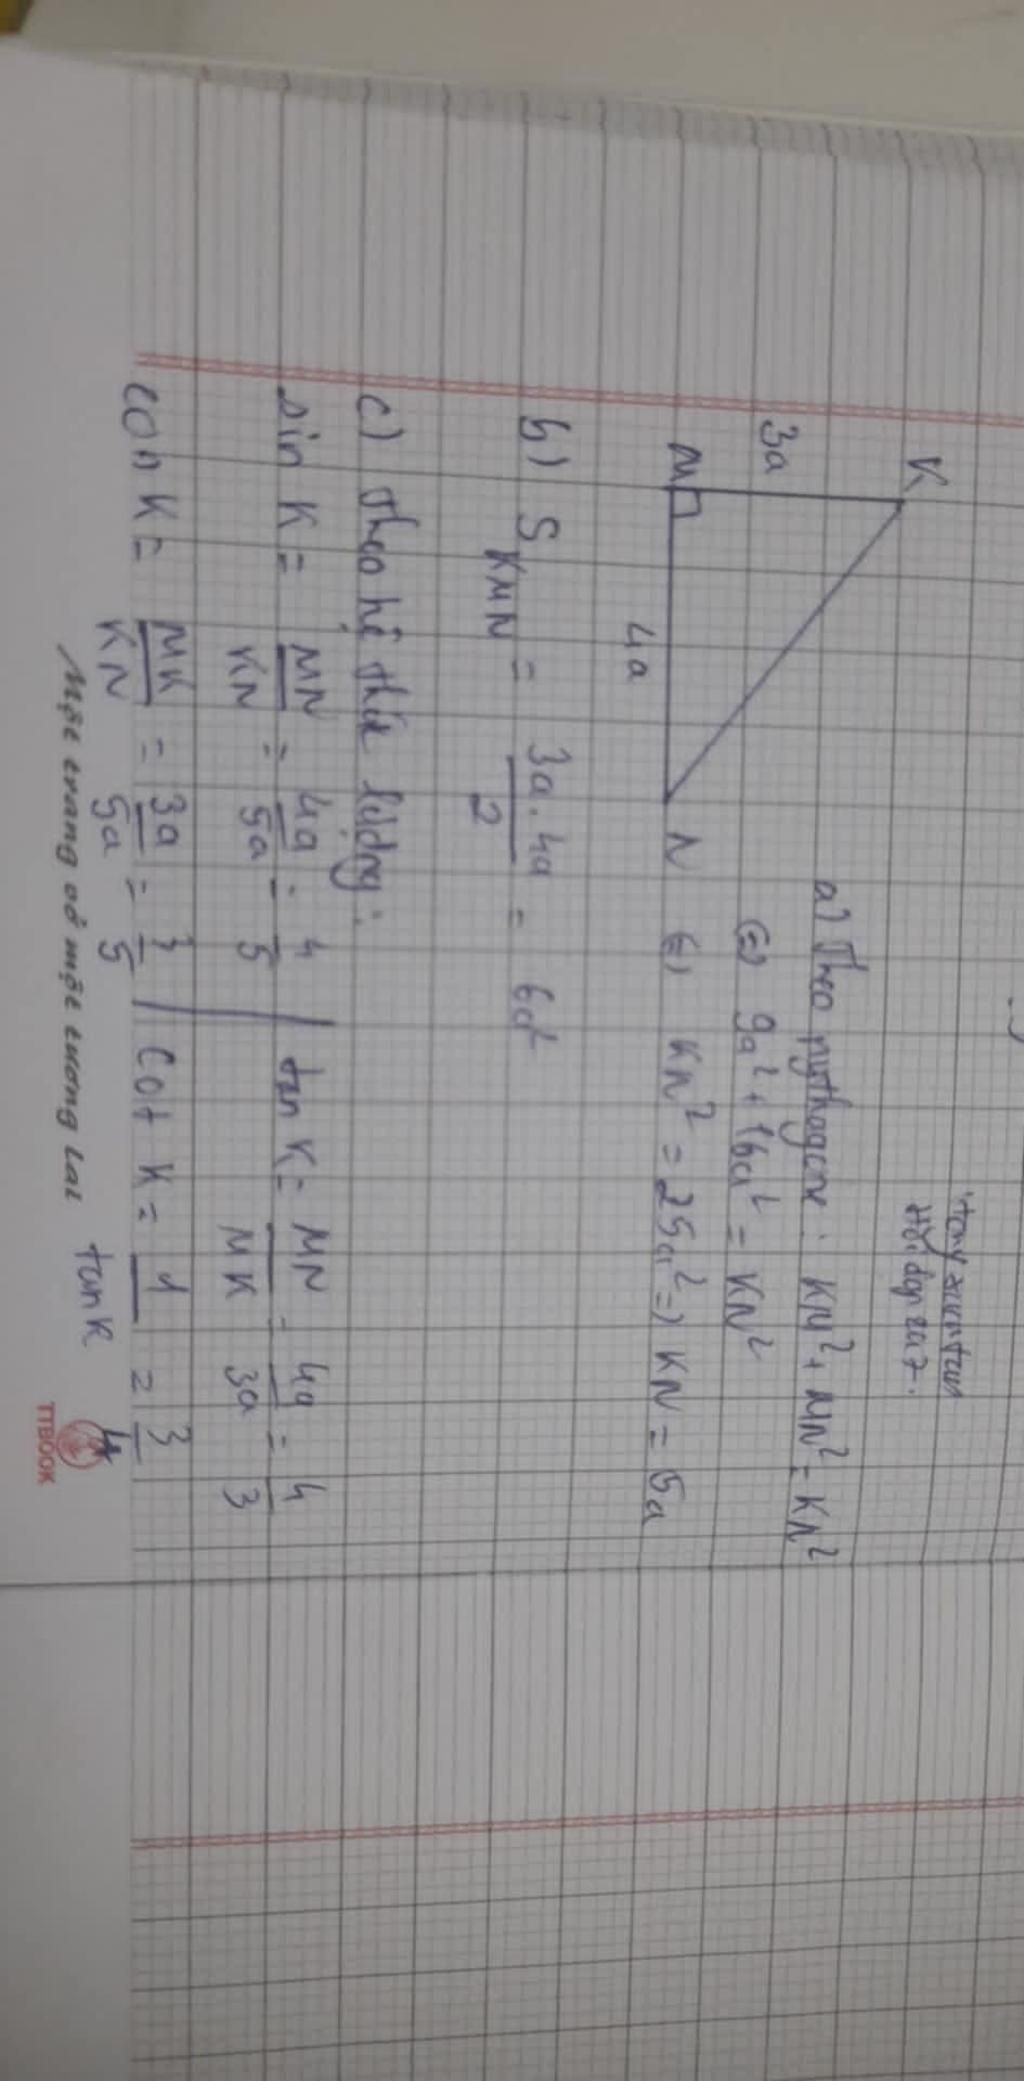 K
3a
M
4a
N
a) Theo pythagore: KM² + MN² = KN²
(=) 9a² + 16a² = KN²
(=) KN² = 25a² => KN = 5a
b) S KMN = 3a.4a / 2 = 6a²
c) theo hệ thức lượng:
sin K = MN/KN = 4a/5a = 4/5 | tan K = MN/MK = 4a/3a = 4/3
cos K = MK/KN = 3a/5a = 3/5 | cot K = 1/tan K = 3/4
Một trang vở một tương lai
TTBOOK